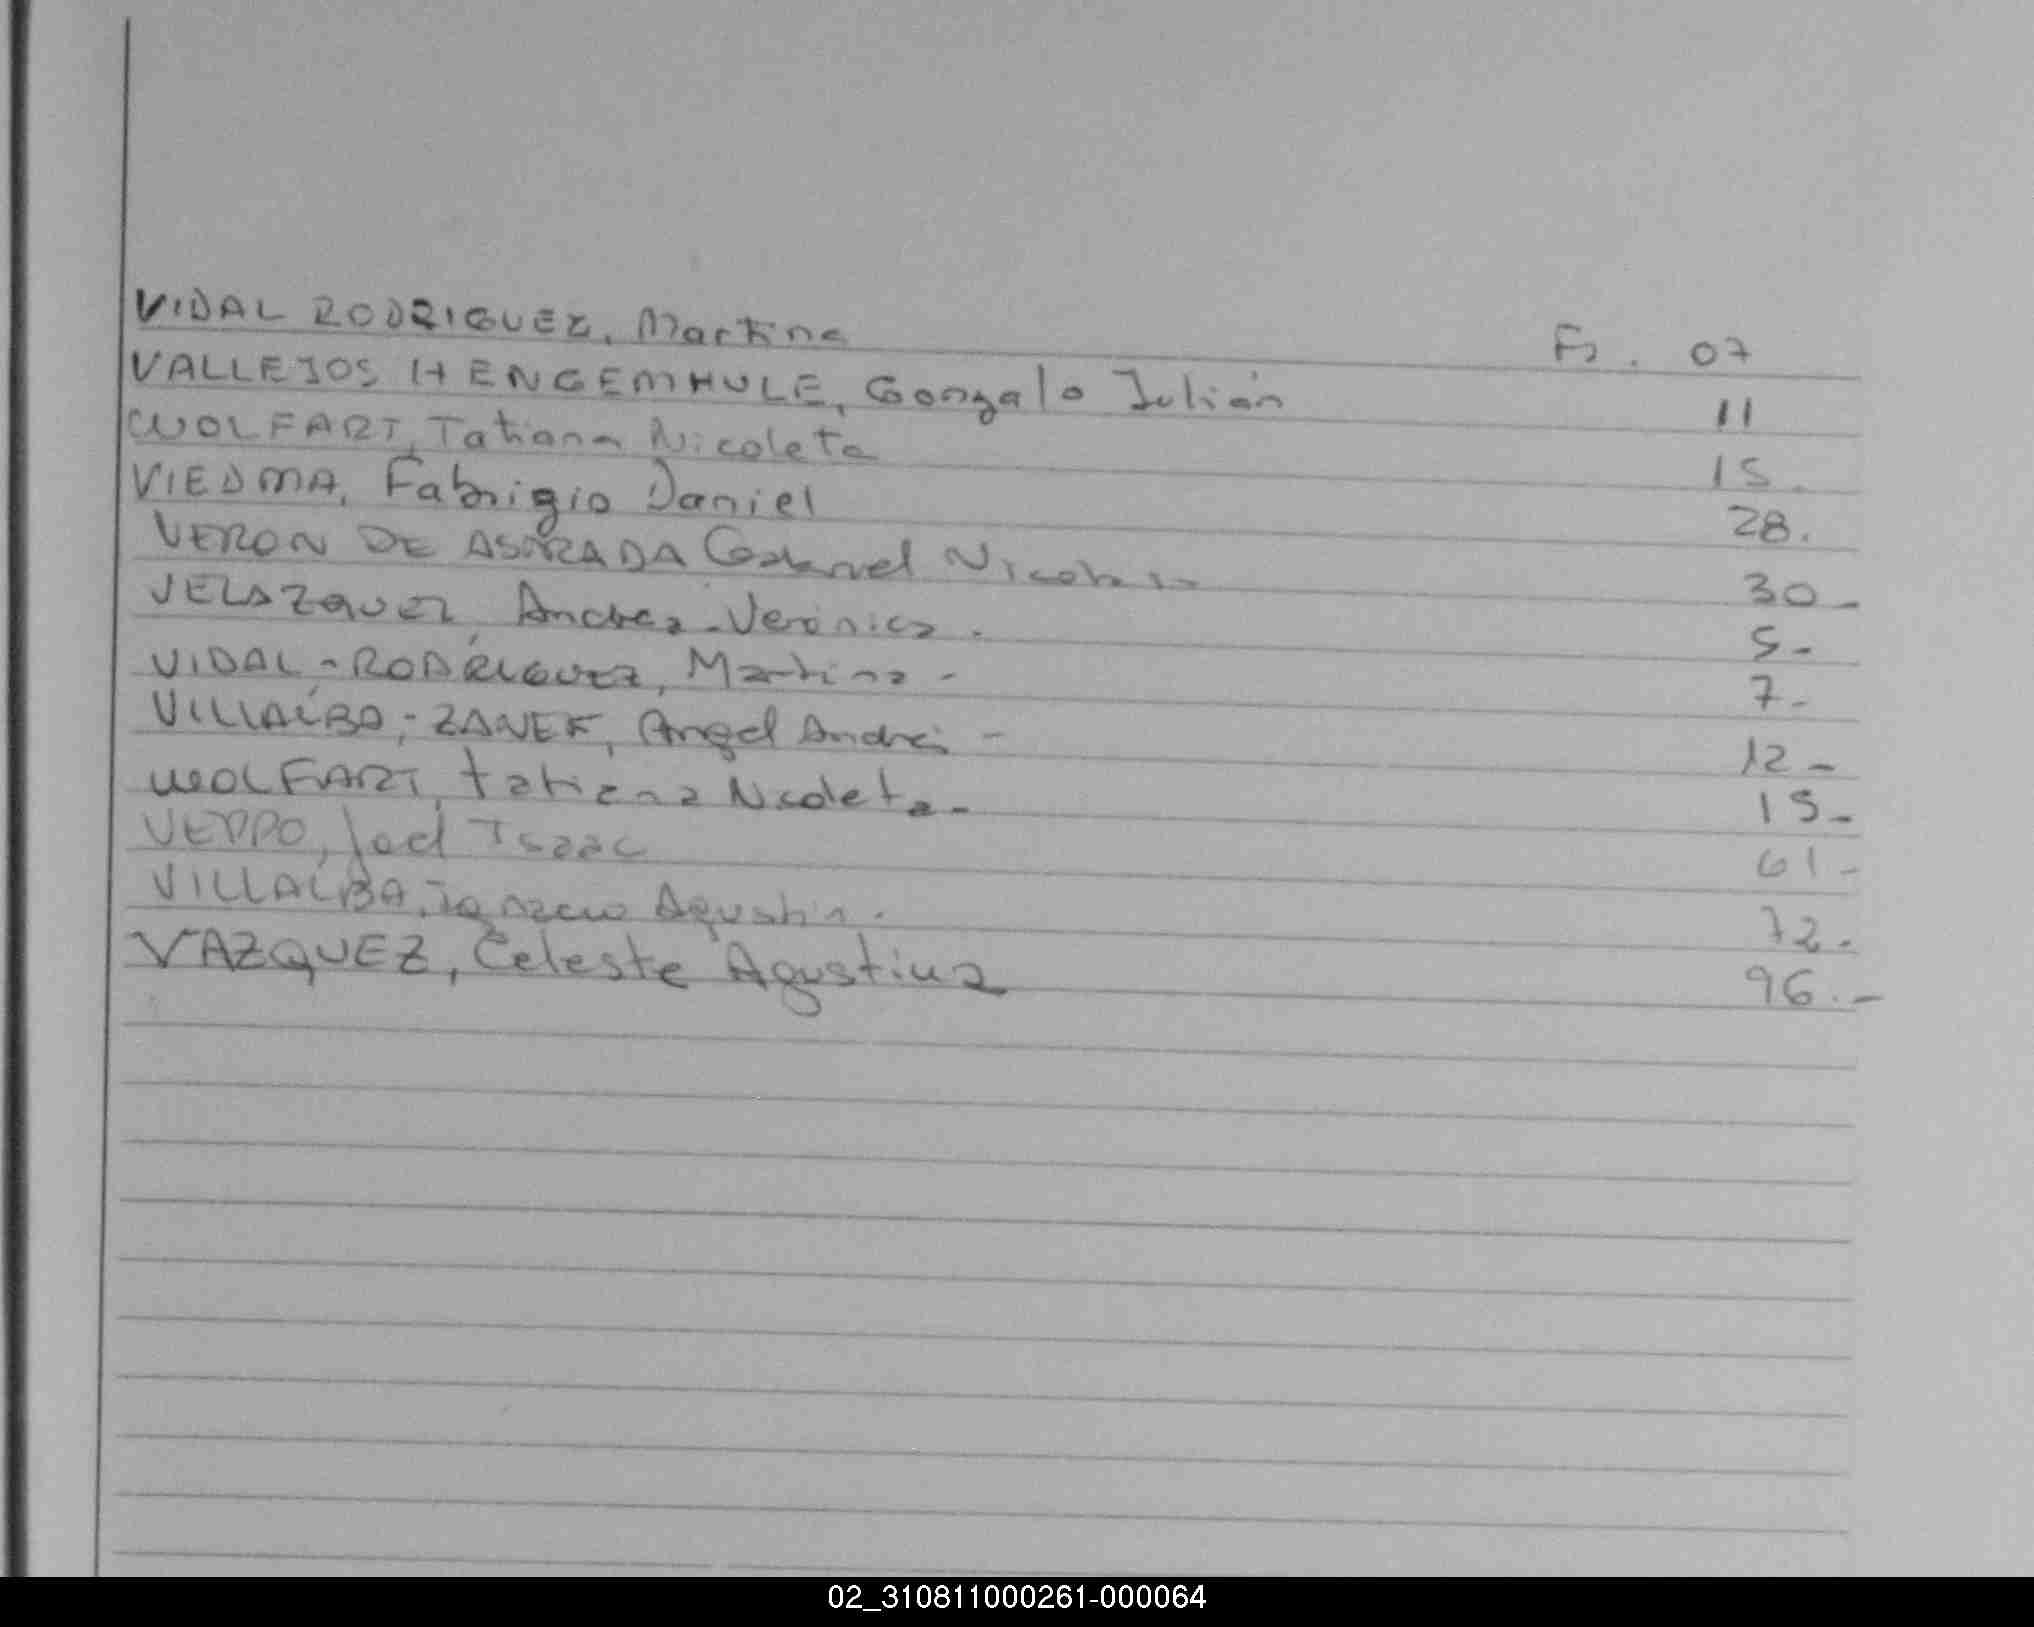 VIDAL RODRIGUEZ, Martina Fs. 07
VALLEJOS HENGEMHULE, Gonzalo Julián 11
WOLFART, Tatiana Nicoleta 15.
VIEDMA, Fabrizio Daniel 28.
VERON DE ASTRADA Gabriel Nicolas 30-
VELAZQUEZ, Andrea Verónica. 5-
VIDAL-RODRIGUEZ, Martina- 7-
VILLALBA-ZANEK, Angel André- 12-
WOLFART, tatiana Nicoleta- 15-
Joel Isaac 61-
VILLALBA, Ignacio Agustin. 72-
VAZQUEZ, Celeste Agustina 96.-
02_310811000261-000064